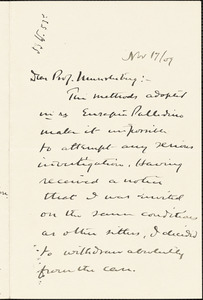 Nov 17/09
Dear Prof. Munsterberg:-
The methods adopted
in re Eusapia Palladino
make it impossible
to attempt any serious
investigation. Having
received a notice
that I was invited
on the same conditions
as other sitters, I decided
to withdraw absolutely
from the case.